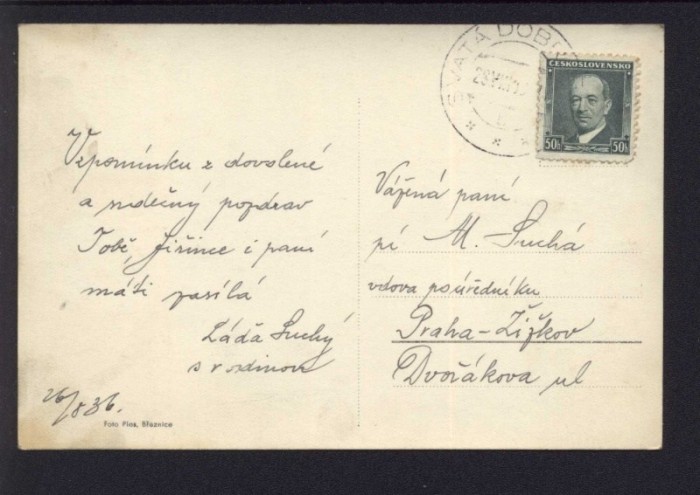 SVATÁ DOBR
ČESKOSLOVENSKO
50h 50h
Vzpomínku z dovolené
a srdečný pozdrav
Tobě, Jiřince i paní
máti zasílá
Láďa Suchý
s rodinou
26/8 36.
Foto Pins, Březnice
Vážená paní
pí M. Suchá
vdova po úředníku
Praha-Žižkov
Dvořákova ul